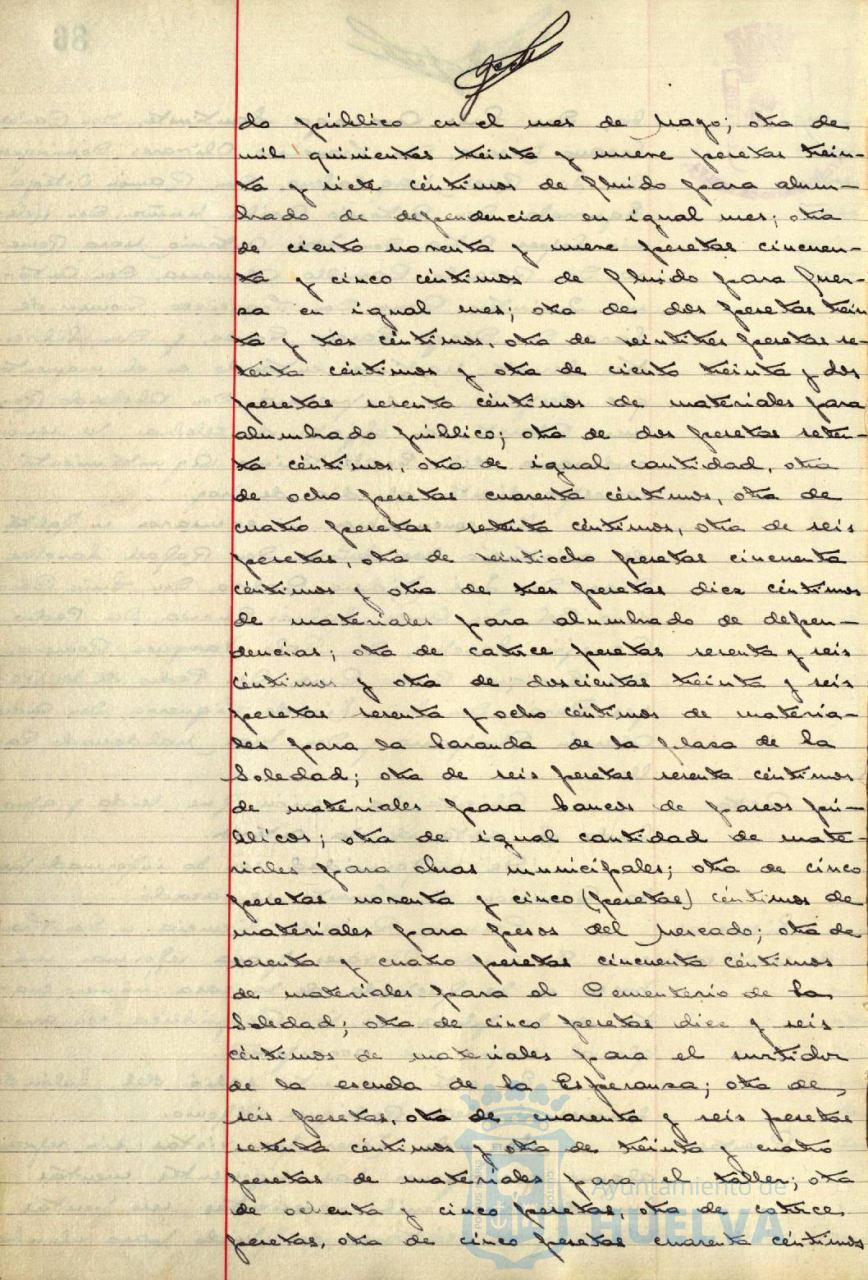 do público en el mes de Mayo; otra de
mil quinientas treinta y nueve pesetas trein-
ta y siete céntimos de fluido para alum-
brado de dependencias en igual mes; otra
de ciento noventa y nueve pesetas cincuen-
ta y cinco céntimos de fluido para fuer-
za en igual mes; otra de dos pesetas trein
ta y tres céntimos, otra de veintitres pesetas se-
tenta céntimos y otra de ciento treinta y dos
pesetas sesenta céntimos de materiales para
alumbrado público; otra de dos pesetas seten-
ta céntimos, otra de igual cantidad, otra
de ocho pesetas cuarenta céntimos, otra de
cuatro pesetas setenta céntimos, otra de seis
pesetas, otra de veintiocho pesetas cincuenta
céntimos y otra de tres pesetas diez céntimos
de materiales para alumbrado de depen-
dencias; otra de catorce pesetas sesenta y seis
céntimos y otra de doscientas treinta y seis
pesetas sesenta y ocho céntimos de materia-
les para la baranda de la plaza de la
Soledad; otra de seis pesetas sesenta céntimos
de materiales para bancos de paseos pú-
blicos; otra de igual cantidad de mate-
riales para obras municipales; otra de cinco
pesetas noventa y cinco (pesetas) céntimos de
materiales para pesos del Mercado; otra de
sesenta y cuatro pesetas cincuenta céntimos
de materiales para el Cementerio de la
Soledad; otra de cinco pesetas diez y seis
céntimos de materiales para el surtidor
de la escuela de la Esperanza; otra de
seis pesetas, otra de cuarenta y seis pesetas
setenta céntimos y otra de treinta y cuatro
pesetas de materiales para el taller; otra
de ochenta y cinco pesetas, otra de catorce
pesetas, otra de cinco pesetas cuarenta céntimos
Ayuntamiento de
HUELVA